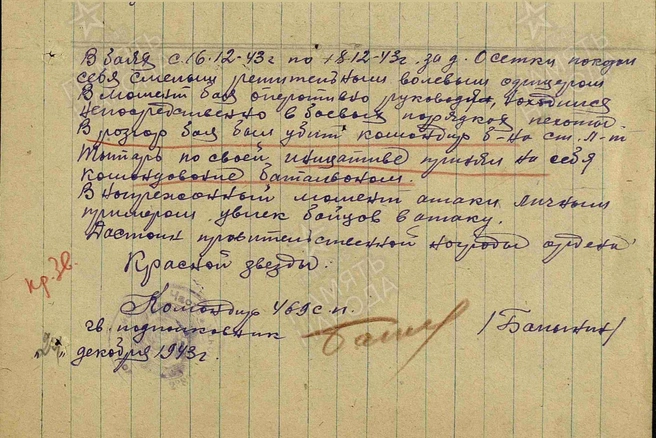 В боях с 16.12-43г по 18.12-43г. за д. Осетки показал
себя смелым решительным волевым офицером
В момент боя оперативно руководил, находился
непосредственно в боевых порядках пехоты.
В розгор боя был убит командир б-на ст. л-т
Тытарь по своей инициативе принял на себя
командование баталионом.
В напряженный момент атаки личным
примером увлек бойцов в атаку.
Достоин правительственной награды ордена
Красной звезды.
кр. зв.
Командир 469 с.п.
гв. подполковник
декабря 1943г.